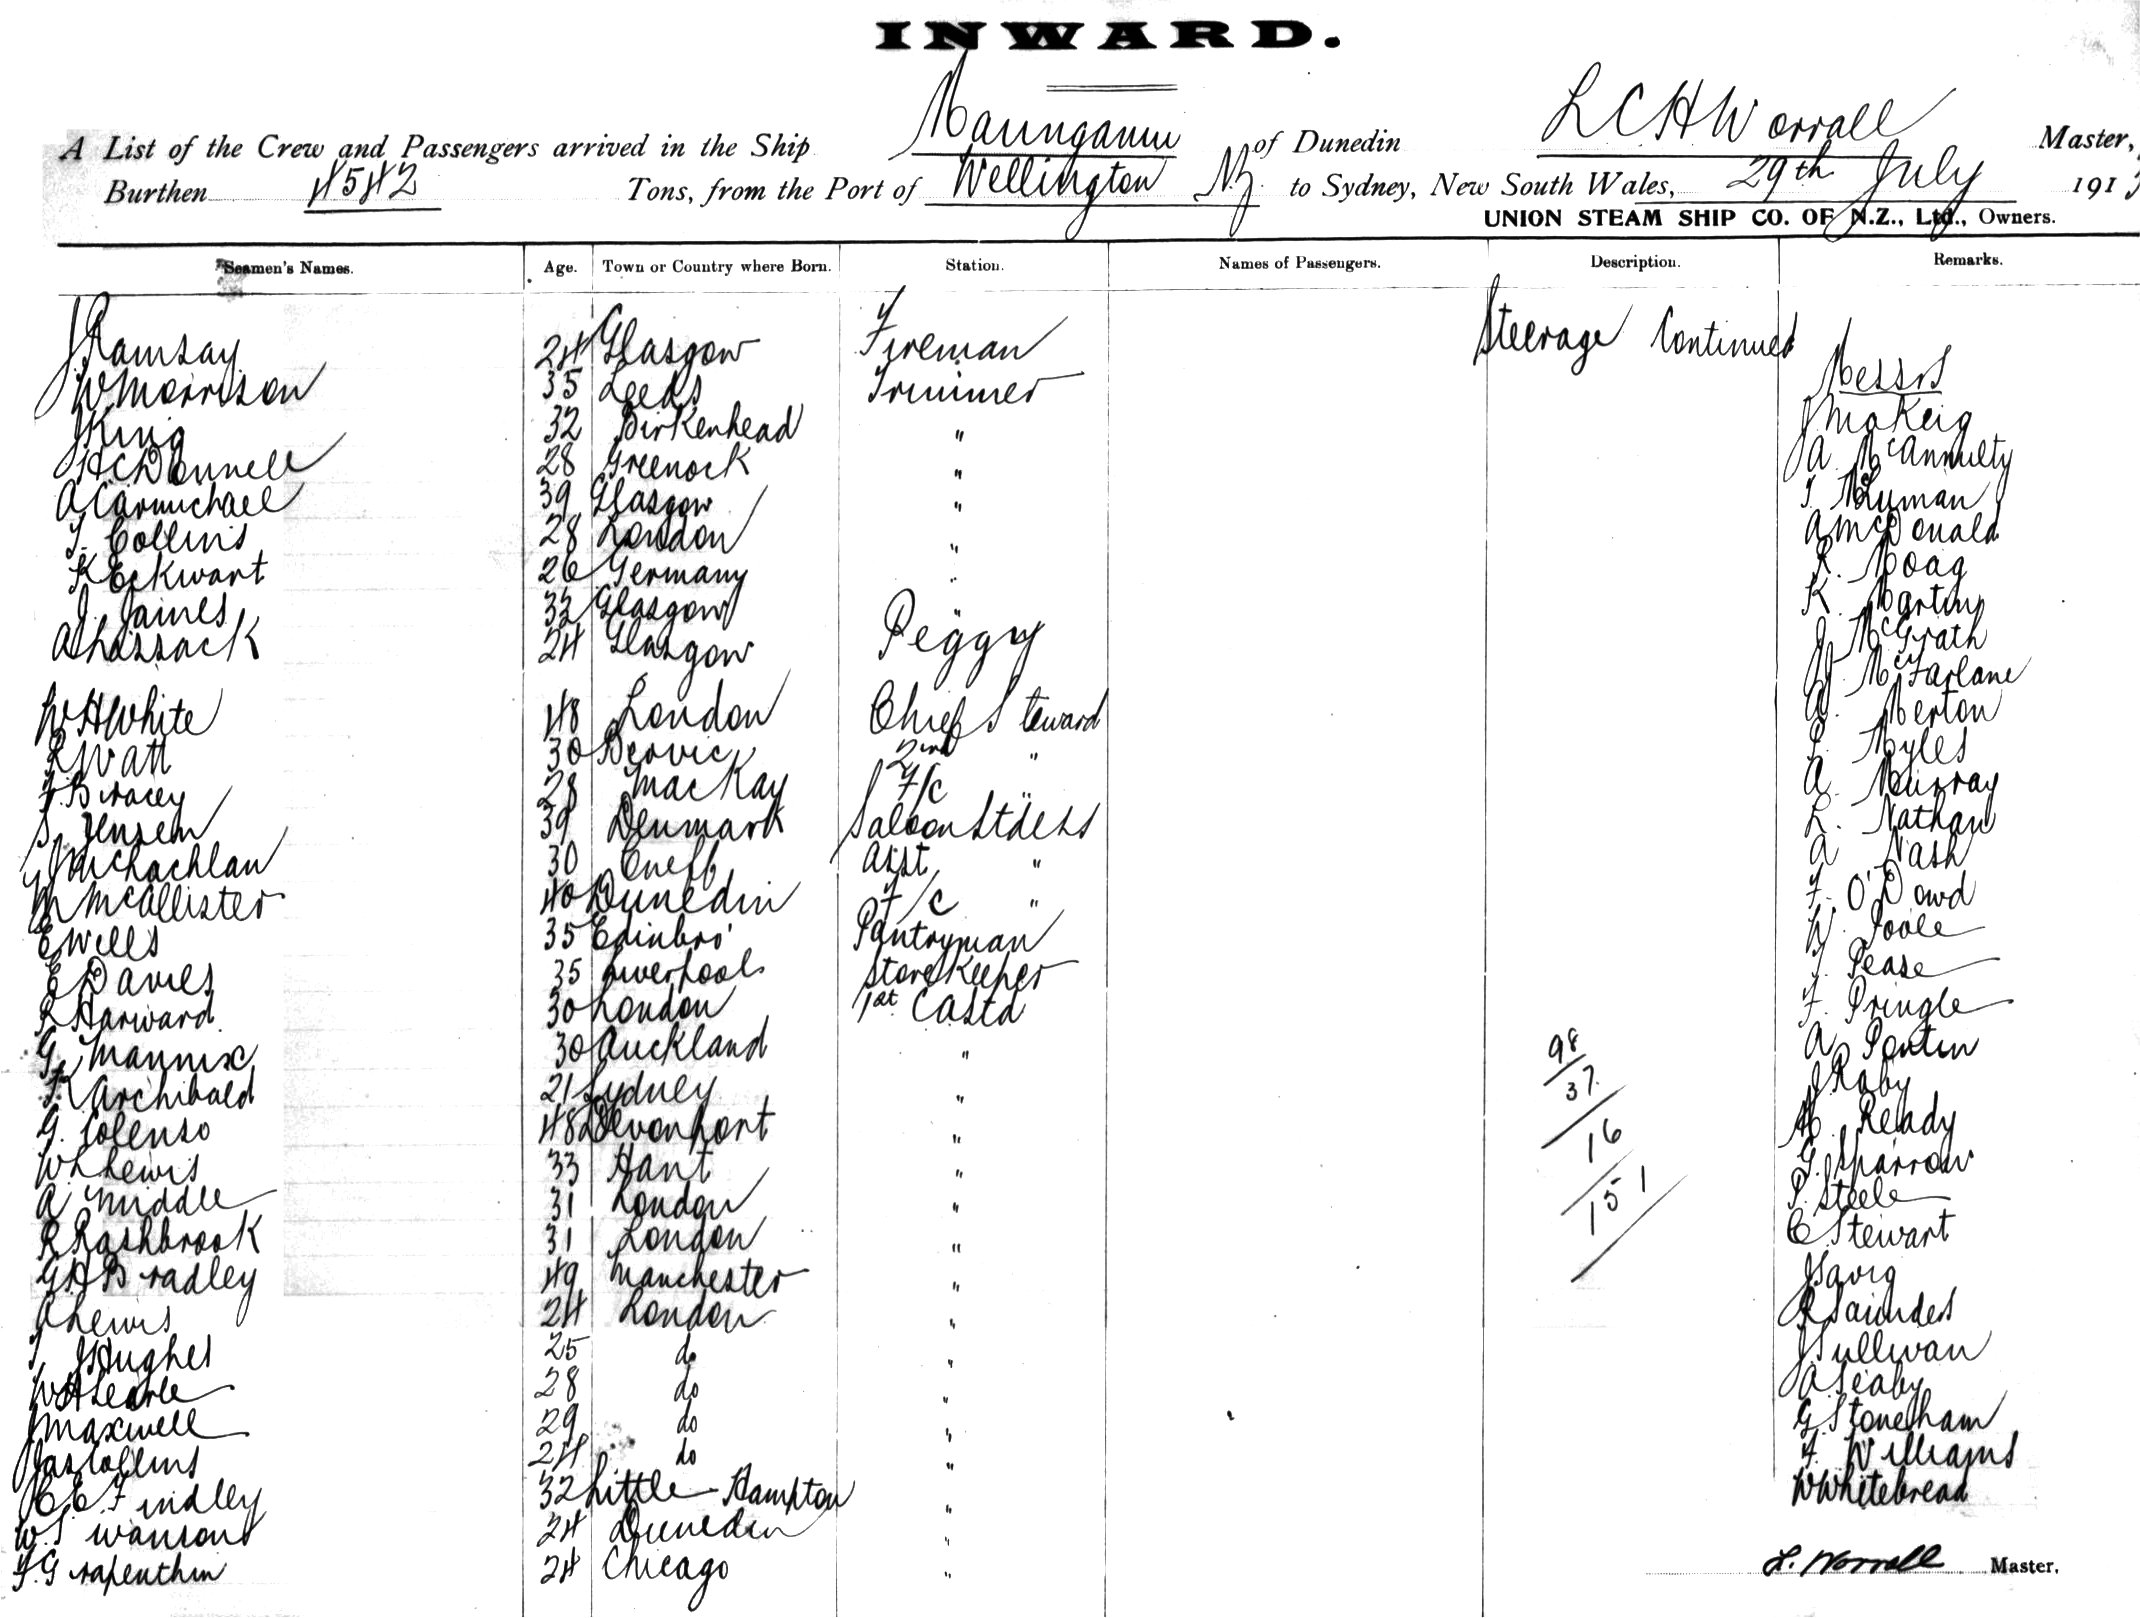 INWARD.
A List of the Crew and Passengers arrived in the Ship Maunganui of Dunedin L C H Worrall Master,
Burthen 4542 Tons, from the Port of Wellington N.Z. to Sydney, New South Wales, 29th July 191
UNION STEAM SHIP CO. OF N.Z., Ltd., Owners.
Seamen's Names. Age. Town or Country where Born. Station. Names of Passengers. Description. Remarks.
Steerage Continued
J Ramsay 24 Glasgow Fireman Messrs
W Morrison 35 Leeds Trimmer
J King 32 Birkenhead " J Makeig
28 Greenock " A McAnnulty
A Carmichael 39 Glasgow "
T. Collins 28 London " A McDonald
K Eckwart 26 Germany " R. Hoag
J. James 33 Glasgow " K. Martin
A Lassack 24 Glasgow Peggy J. McGrath
McFarlane
W H White 48 London Chief Steward A. Merton
R Watt 30 2nd " Myles
F. Bracey 28 MacKay F/C " A. Murray
S. Jensen 39 Denmark Saloon Stdess L. Nathan
J McLachlan 30 asst " A Nash
M McAllister 40 Dunedin F/C " F. O'Dowd
E Wells 35 Edinbro' Pantryman W. Poole
E Davies 35 Liverpool StoreKeeper J. Pease
R Harward 30 London 1st C Astd F. Pringle
G. Mannix 30 Auckland " 98 A
F. Archibald 21 Sydney " 37 J Raby
G. Colenso 48 Devonport " 16 M. Ready
W Lewis 33 Hant " G. Sparrow
A Middle 31 London " 151 P. Steele
R Rashbrook 31 London " C Stewart
G H Bradley 49 Manchester "
A Lewis 24 London " R Saunders
T. J Hughes 25 do " J Sullivan
W A Searle 28 do " A Seaby
J Maxwell 29 do " G Stoneham
Jas Collins 24 do " F. Williams
C E Findley 32 Little Hampton " W Whitebread
W Swanson 24 Dunedin "
F. Grapenthin 24 Chicago " L. Worrall Master.